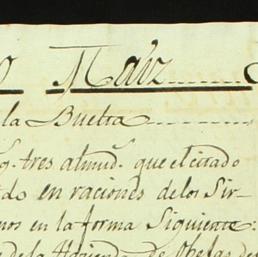 o Maiz
la Buelta
q. tres almud.s que el citado
do en raciones de los Sir-
nos en la forma Siguiente:
de la Hazienda de Obejas de